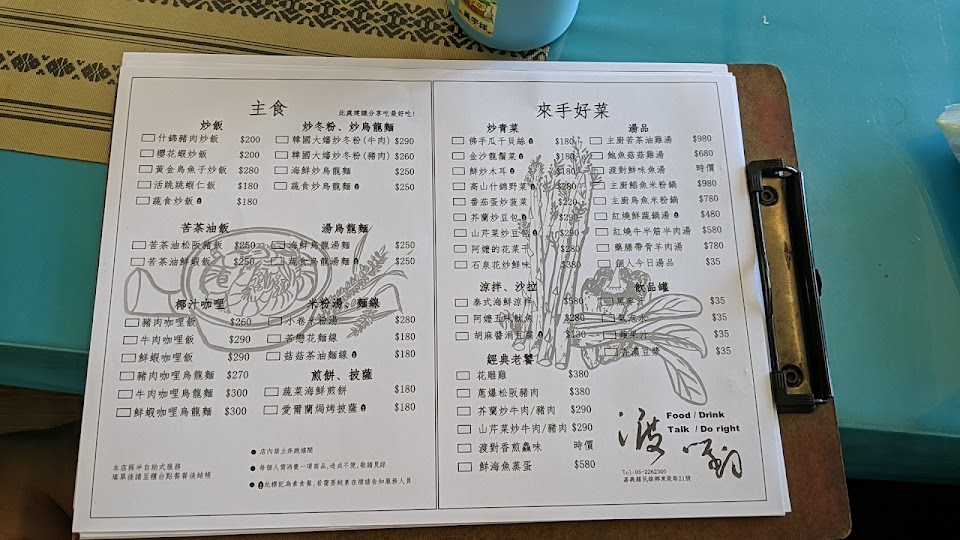 主食
此處建議分享吃最好吃!
炒飯
什錦豬肉炒飯 $200
櫻花蝦炒飯 $200
黃金烏魚子炒飯 $280
活跳跳蝦仁飯 $180
蔬食炒飯 $180
炒冬粉、炒烏龍麵
韓國大嬸炒冬粉(牛肉) $290
韓國大嬸炒冬粉(豬肉) $260
海鮮炒烏龍麵 $250
蔬食炒烏龍麵 $250
苦茶油飯
苦茶油松阪豬飯 $250
苦茶油鮮蝦飯 $250
湯烏龍麵
海鮮烏龍湯麵 $250
蔬食烏龍湯麵 $250
椰汁咖哩
豬肉咖哩飯 $260
牛肉咖哩飯 $290
鮮蝦咖哩飯 $290
豬肉咖哩烏龍麵 $270
牛肉咖哩烏龍麵 $300
鮮蝦咖哩烏龍麵 $300
米粉湯、麵線
小卷米粉湯 $280
苦戀花麵線 $180
菇菇茶油麵線 $180
煎餅、披薩
蔬菜海鮮煎餅 $180
愛爾蘭焗烤披薩 $180
本店採半自助式服務
填單後請至櫃台點餐餐後結帳
● 店內禁止奔跑嬉鬧
● 每個人需消費一項商品,造成不便,敬請見諒
● 此標記為素食餐,若需要純素在煩請告知服務人員
來手好菜
炒青菜
佛手瓜干貝絲 $180
金沙龍鬚菜 $180
鮮炒木耳 $180
高山什錦野菜 $280
番茄蛋炒菠菜 $220
芥蘭炒豆包 $290
山芹菜炒豆包 $290
阿嬤的花菜干 $280
石泉花炒鮮味 $380
涼拌、沙拉
泰式海鮮涼拌 $580
阿嬤五味魷魚 $280
胡麻醬涓豆腐 $120
經典老饕
花雕雞 $380
蔥爆松阪豬肉 $380
芥蘭炒牛肉/豬肉 $290
山芹菜炒牛肉/豬肉 $290
渡對香煎蟲味 時價
鮮海魚蒸蛋 $580
湯品
主廚苦茶油雞湯 $980
鮑魚菇菇雞湯 $680
渡對鮮味魚湯 時價
主廚鯧魚米粉鍋 $980
主廚烏魚米粉鍋 $780
紅燒鮮蔬鍋湯 $480
紅燒牛半筋半肉湯 $580
藥膳帶骨羊肉湯 $780
個人今日湯品 $35
飲品罐
黑麥汁 $35
氣泡水 $35
蘋果汁 $35
香濃豆漿 $35
渡對
Food / Drink
Talk / Do right
Tel:05-2262300
嘉義縣民雄鄉東榮路21號